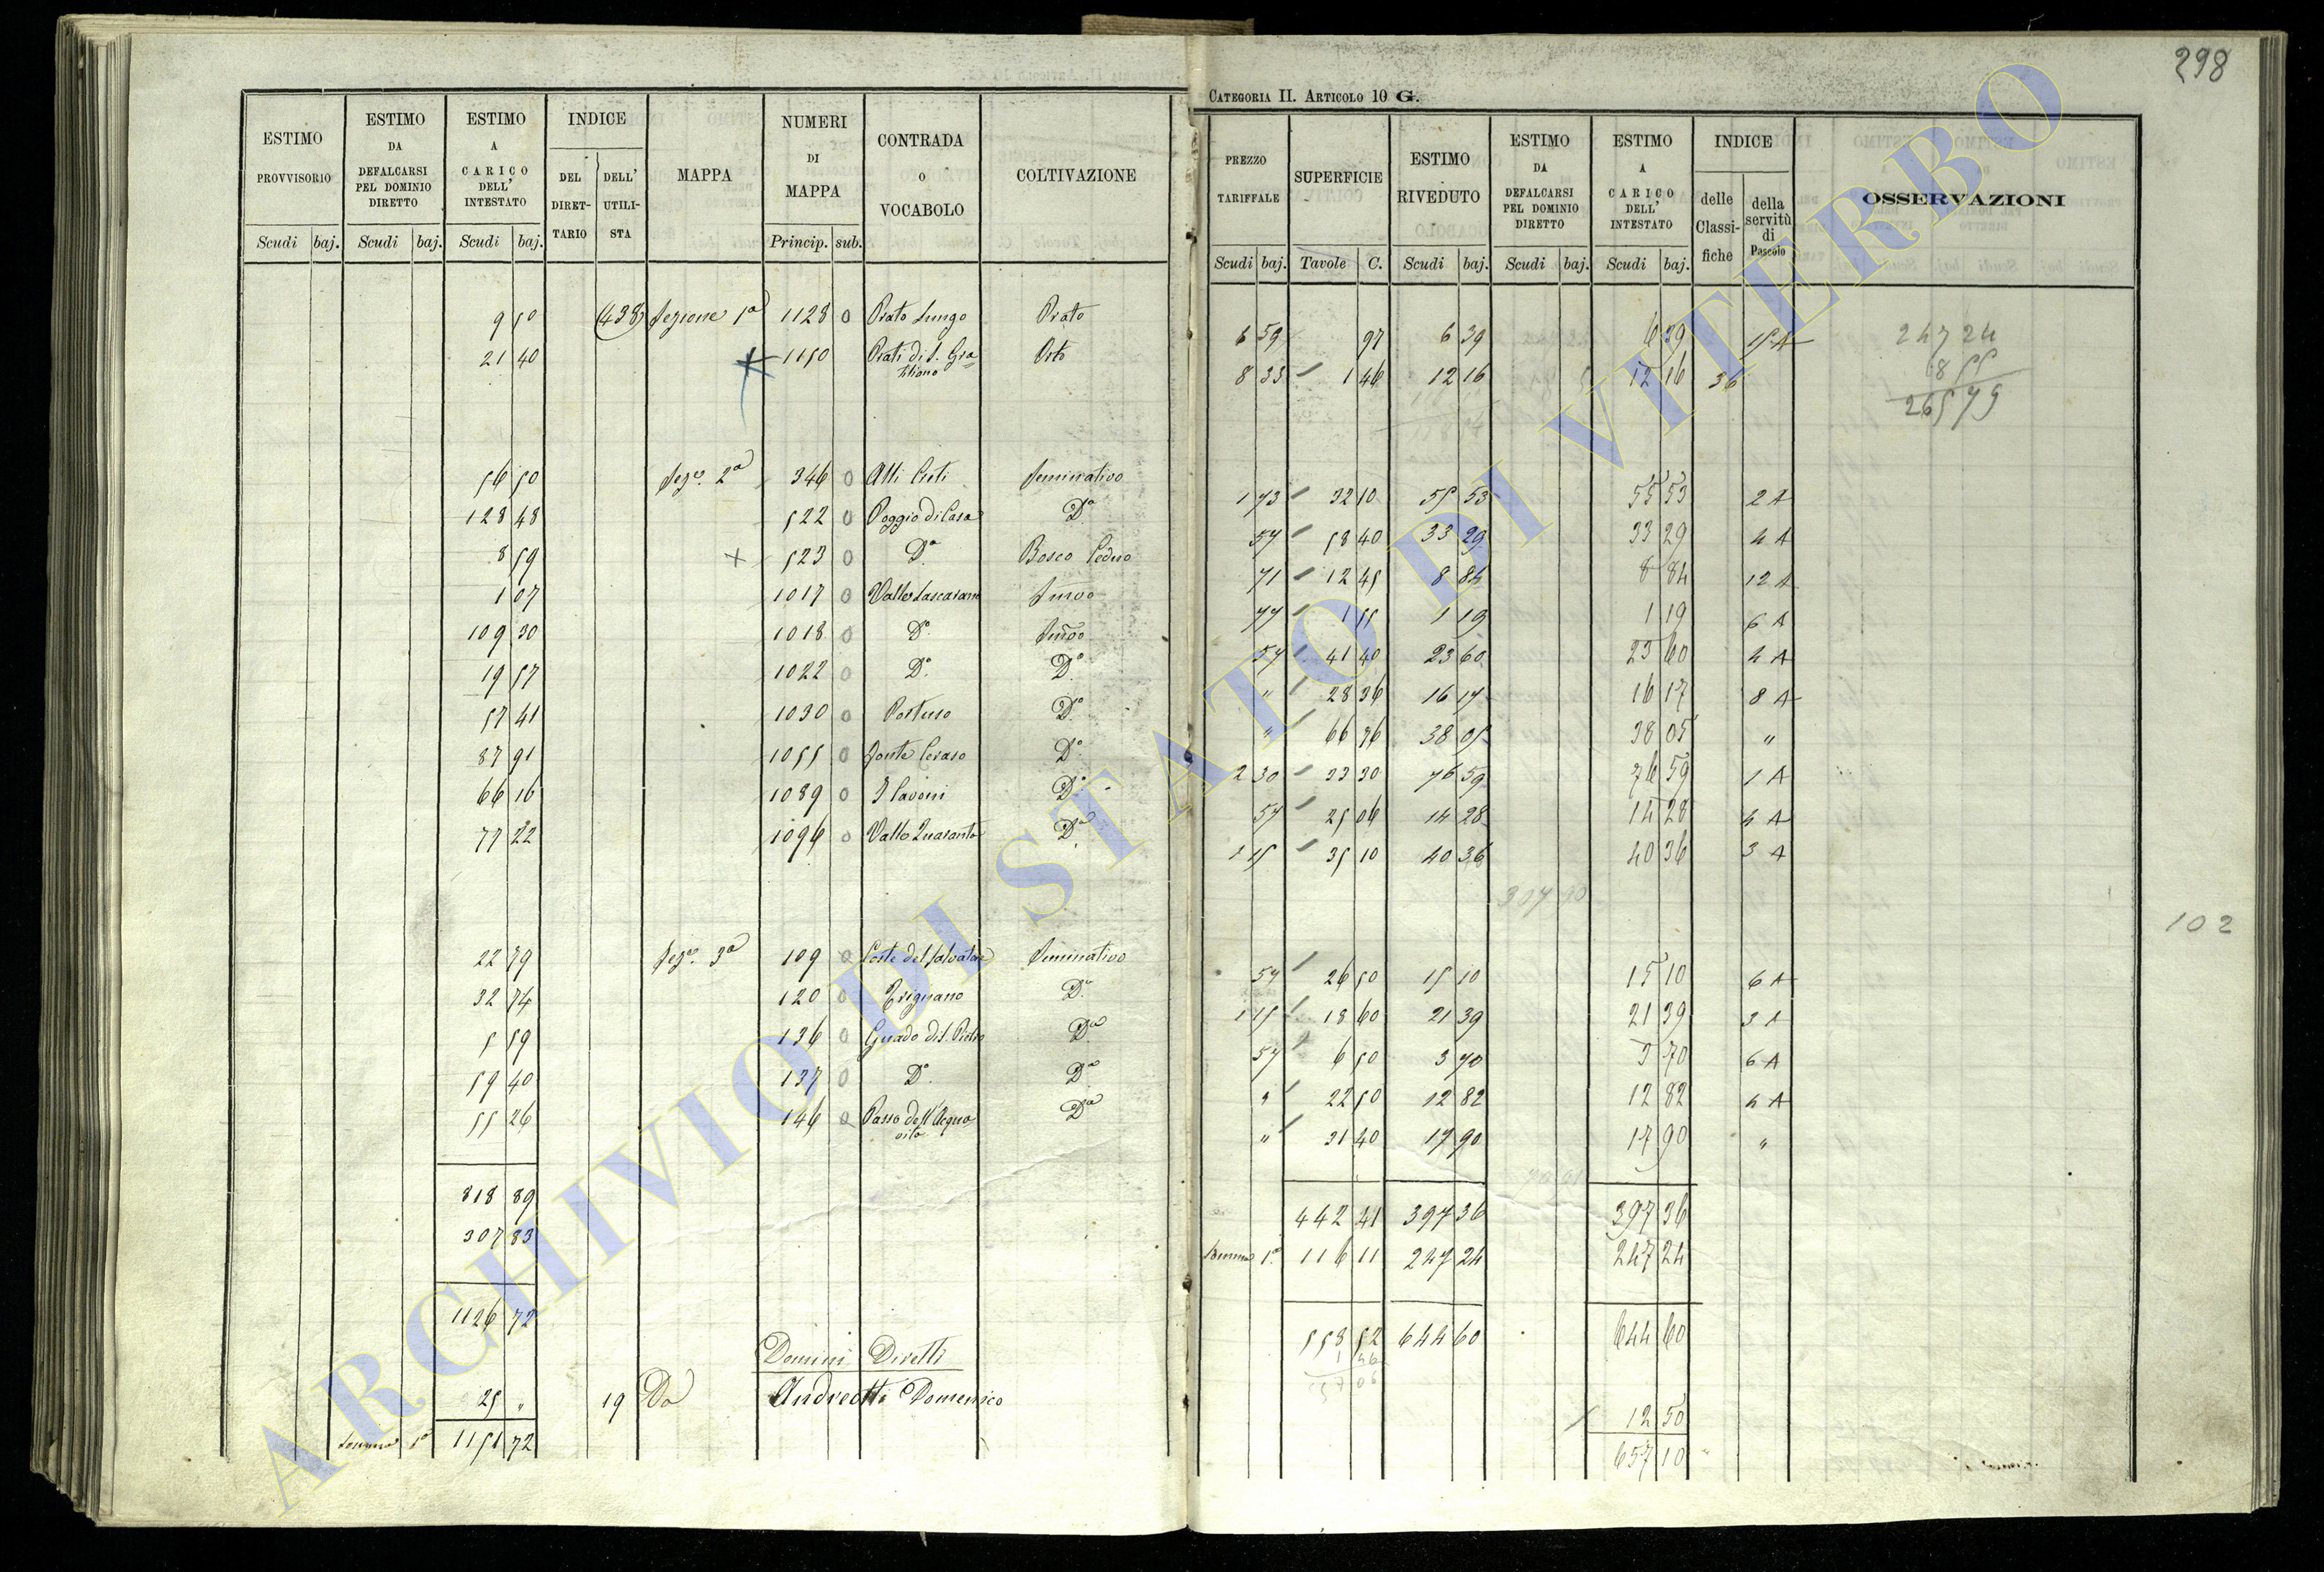 298
CATEGORIA II. ARTICOLO 10 G.
ESTIMO PROVVISORIO | ESTIMO DA DEFALCARSI PEL DOMINIO DIRETTO | ESTIMO A CARICO DELL' INTESTATO | INDICE DEL DIRET- TARIO | DELL' UTILI- STA | MAPPA | NUMERI DI MAPPA | CONTRADA O VOCABOLO | COLTIVAZIONE
Scudi baj. | Scudi baj. | Scudi baj. | Princip. sub.
9 50 (438) Sezione 1a 1128 0 Prato Lungo Prato
21 40 1150 Prati di S. Gra
tiliano Orto
56 50 Seze. 2a 346 0 Alti Creti Seminativo
128 48 522 0 Poggio di Casa Do
8 59 + 523 0 Do Bosco Ceduo
1 07 1017 0 Valle Lascarana
109 30 1018 0 Do
19 57 1022 0 Do Do
57 41 1030 0 Do
87 91 1055 0 Fonte Ceraso Do
66 16 1089 0 Do
77 22 1096 0 Valle Quaranta Do
22 79 Seze. 3a 109 0 Coste del Salvatore Seminativo
32 74 120 0 Trignano Do
5 59 136 0 Guado di S. Pietro Do
59 40 137 0 Do Do
55 26 146 0 Passo dell'Acqua
vita Do
818 89
307 83
1126 72
Domini Diretti
25 " 19 Do Andreotti Domenico
Somma 1151 72
PREZZO TARIFFALE | SUPERFICIE | ESTIMO RIVEDUTO | ESTIMO DA DEFALCARSI PEL DOMINIO DIRETTO | ESTIMO A CARICO DELL' INTESTATO | INDICE delle Classi- fiche | della servitù di Pascolo | OSSERVAZIONI
Scudi baj. | Tavole C. | Scudi baj. | Scudi baj. | Scudi baj.
6 59 97 6 39 6 39 15 A 247 24
8 33 1 46 12 16 12 16 36 18 55
265 79
1 73 32 10 55 53 55 53 2 A
57 58 40 33 29 33 29 4 A
71 12 45 8 84 8 84 12 A
77 1 55 1 19 1 19 6 A
57 41 40 23 60 23 60 4 A
" 28 36 16 17 16 17 8 A
" 66 76 38 05 38 05 "
2 30 33 30 76 59 76 59 1 A
57 25 06 14 28 14 28 4 A
1 15 35 10 40 36 40 36 3 A
307 90
102
57 26 50 15 10 15 10 6 A
1 15 18 60 21 39 21 39 3 A
57 6 50 3 70 3 70 6 A
" 22 50 12 82 12 82 4 A
" 31 40 17 90 17 90 "
442 41 397 36 397 36
Somma 1a 116 11 247 24 247 24
558 52 644 60 644 60
1 46
557 06
12 50
657 10
ARCHIVIO DI STATO DI VITERBO